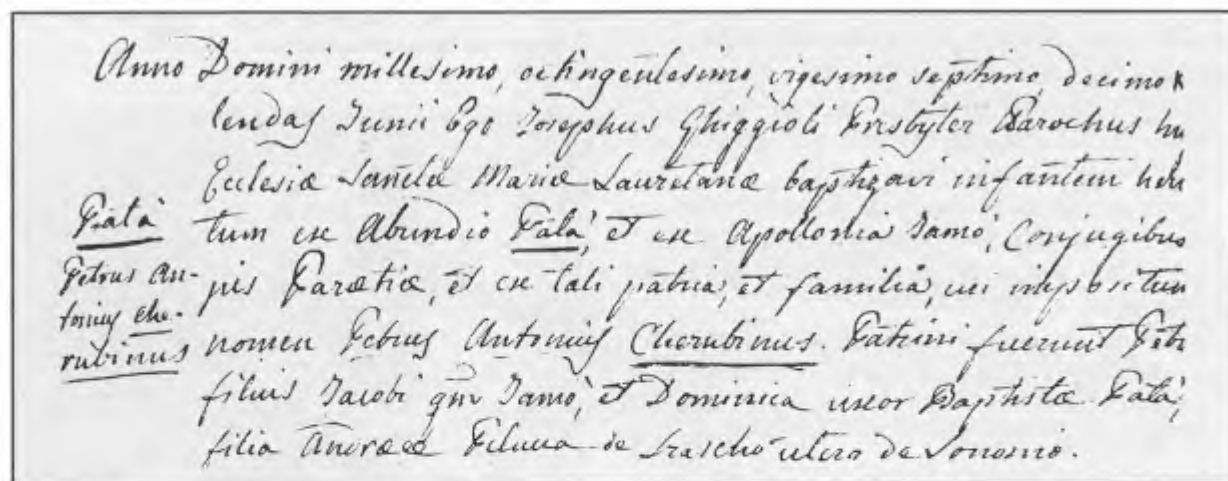 Anno Domini millesimo, octingentesimo, vigesimo septimo, decimo K
lendas Junii Ego Josephus Ghiggioli Presbyter Parochus hu
Ecclesiæ Sanctæ Mariæ Lauretanæ baptizavi infantem heri
tum ex Abundio Patà, et ex Apollonia Jamò, Conjugibus
jus Parætiæ, et ex tali patria, et familia, cui impositum
nomen Petrus Antonius Cherubinus. Patrini fuerunt Petr
filius Jacobi qm Jamò, et Dominica uxor Baptistæ Patà,
filia Andreæ de utera de Sonomio.
Patà
Petrus An-
tonius Che-
rubinus